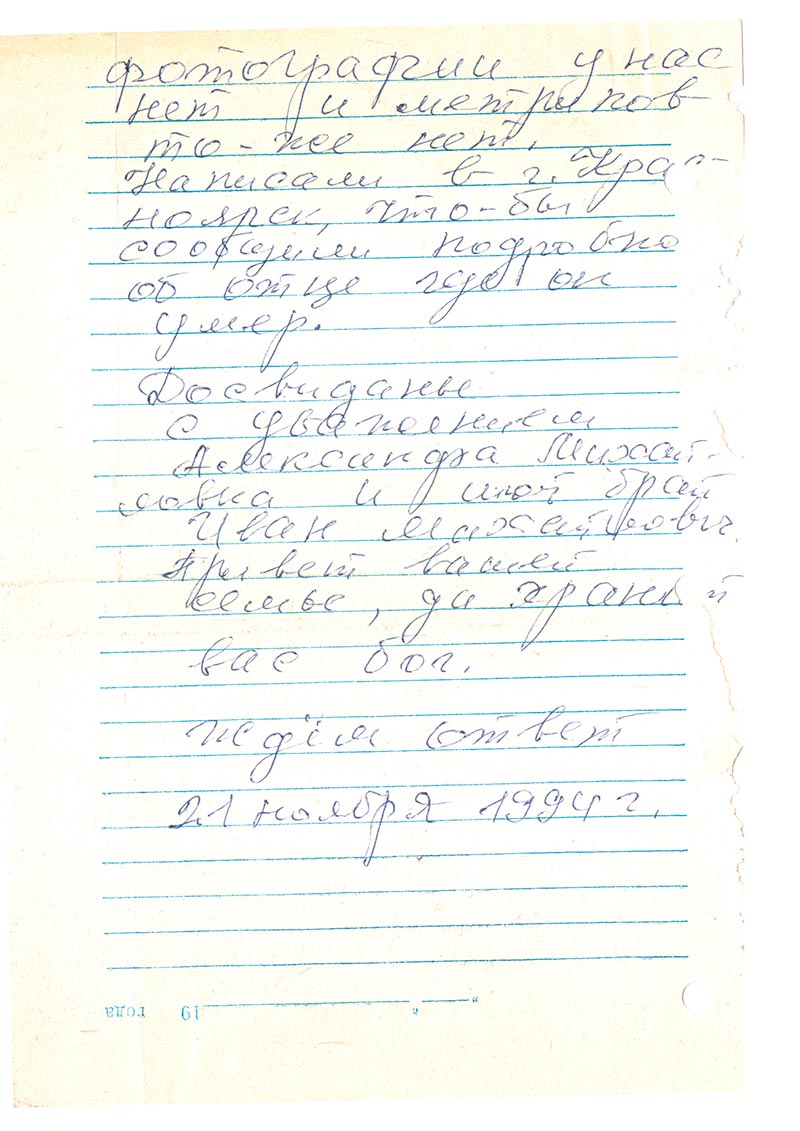 фотографии у нас
нет и метриков
то-же нет.
Написали в г. Крас-
ноярск, что-бы
сообщили подробно
об отце где он
умер.
Досвиданье
с уважением
Александра Михай-
ловна и мой брат
Иван Михайлович.
Привет вашей
семье, да хранит
вас бог.
ждём ответ
21 ноября 1994 г.
" " 19 года